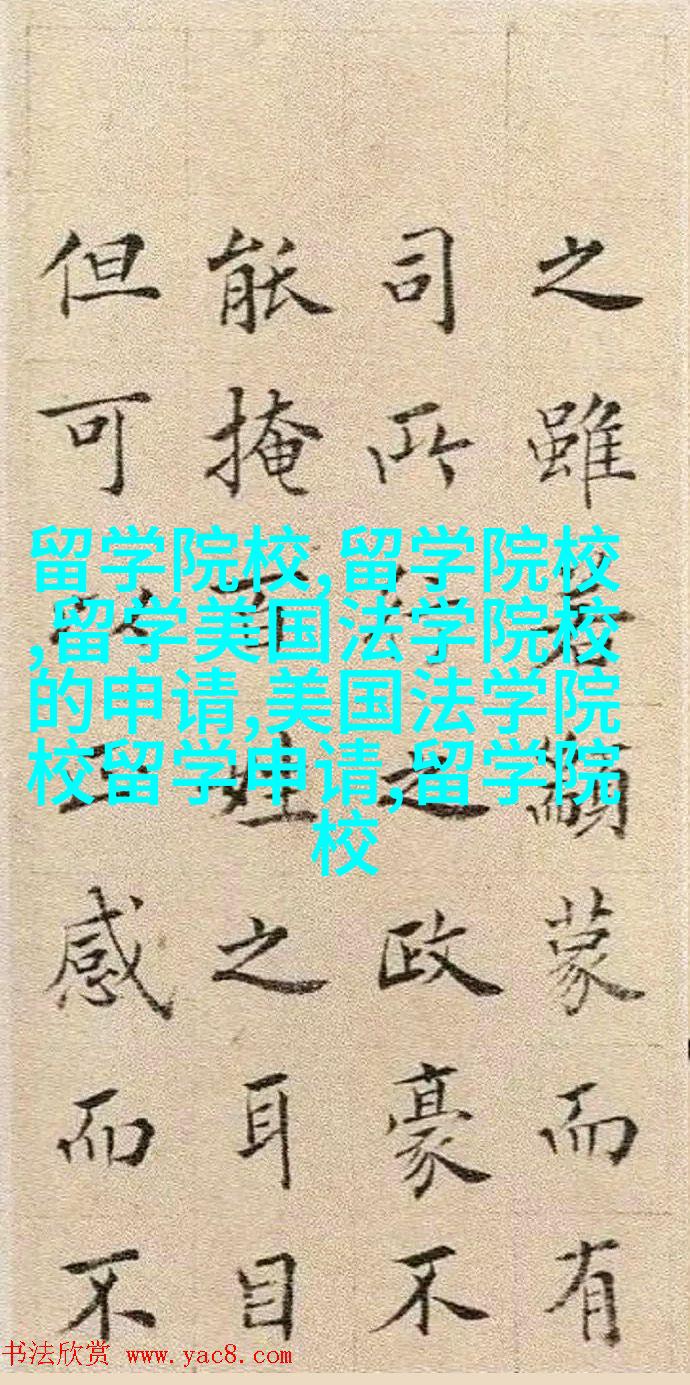 之雖若蒙而有
司所之政豪不
能掩百姓之耳目
但可以感而不
留学院校,留学院校
,留学美国法学院校
的申请,美国法学院
校留学申请,留学院
校
书法欣赏 www.yac8.com